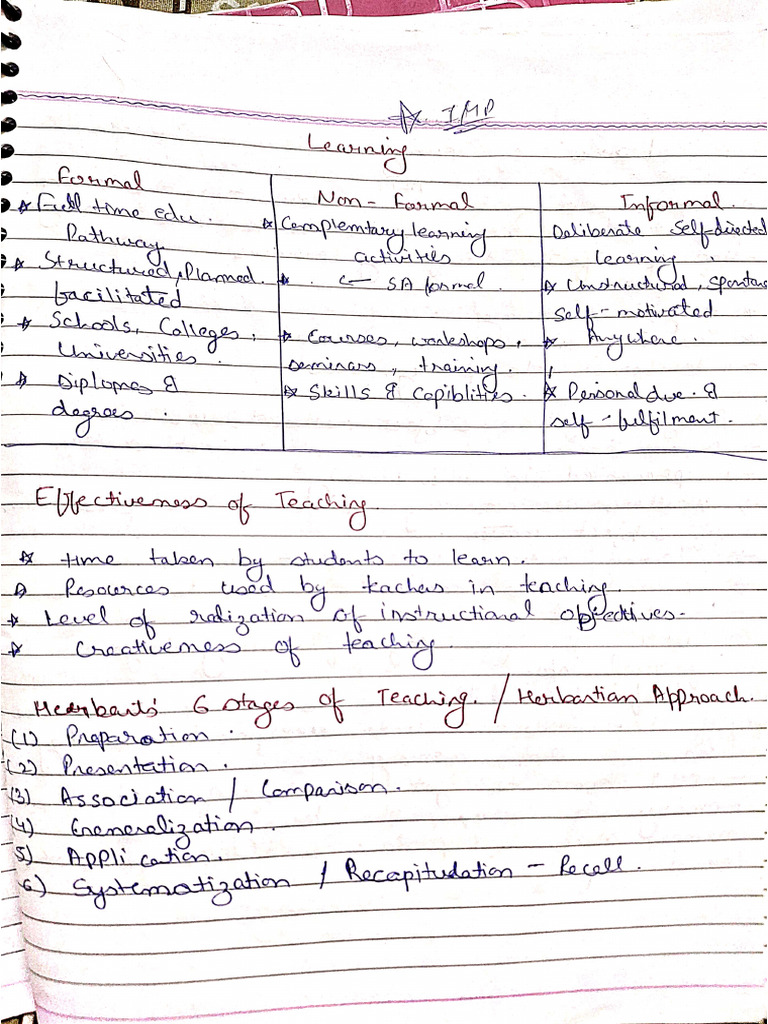 ☆ IMP
Learning
Formal
☆ Full time edu.
Pathway
☆ Structured, Planned.
facilitated
☆ Schools, Colleges,
Universities.
☆ Diplomas &
degrees.
Non - Formal
☆ Complemtary learning
activities
☆ . ← SA formal.
☆ Courses, workshops,
seminars, training.
☆ Skills & Capiblities.
Informal.
Deliberate Self-directed
learning.
☆ Unstructured, spontane
self-motivated
☆ Anywhere.
☆ Personal dve. &
self-fulfilment.
Effectiveness of Teaching
☆ time taken by students to learn.
☆ Resources used by teachers in teaching.
☆ Level of ralization of instructional objectives.
☆ Creativeness of teaching
Heerbart's 6 stages of Teaching. / Herbartian Approach.
(1) Preparation.
(2) Presentation.
(3) Association / Comparison.
(4) Generalization.
5) Application.
6) Systematization / Recapitudation - Recall.